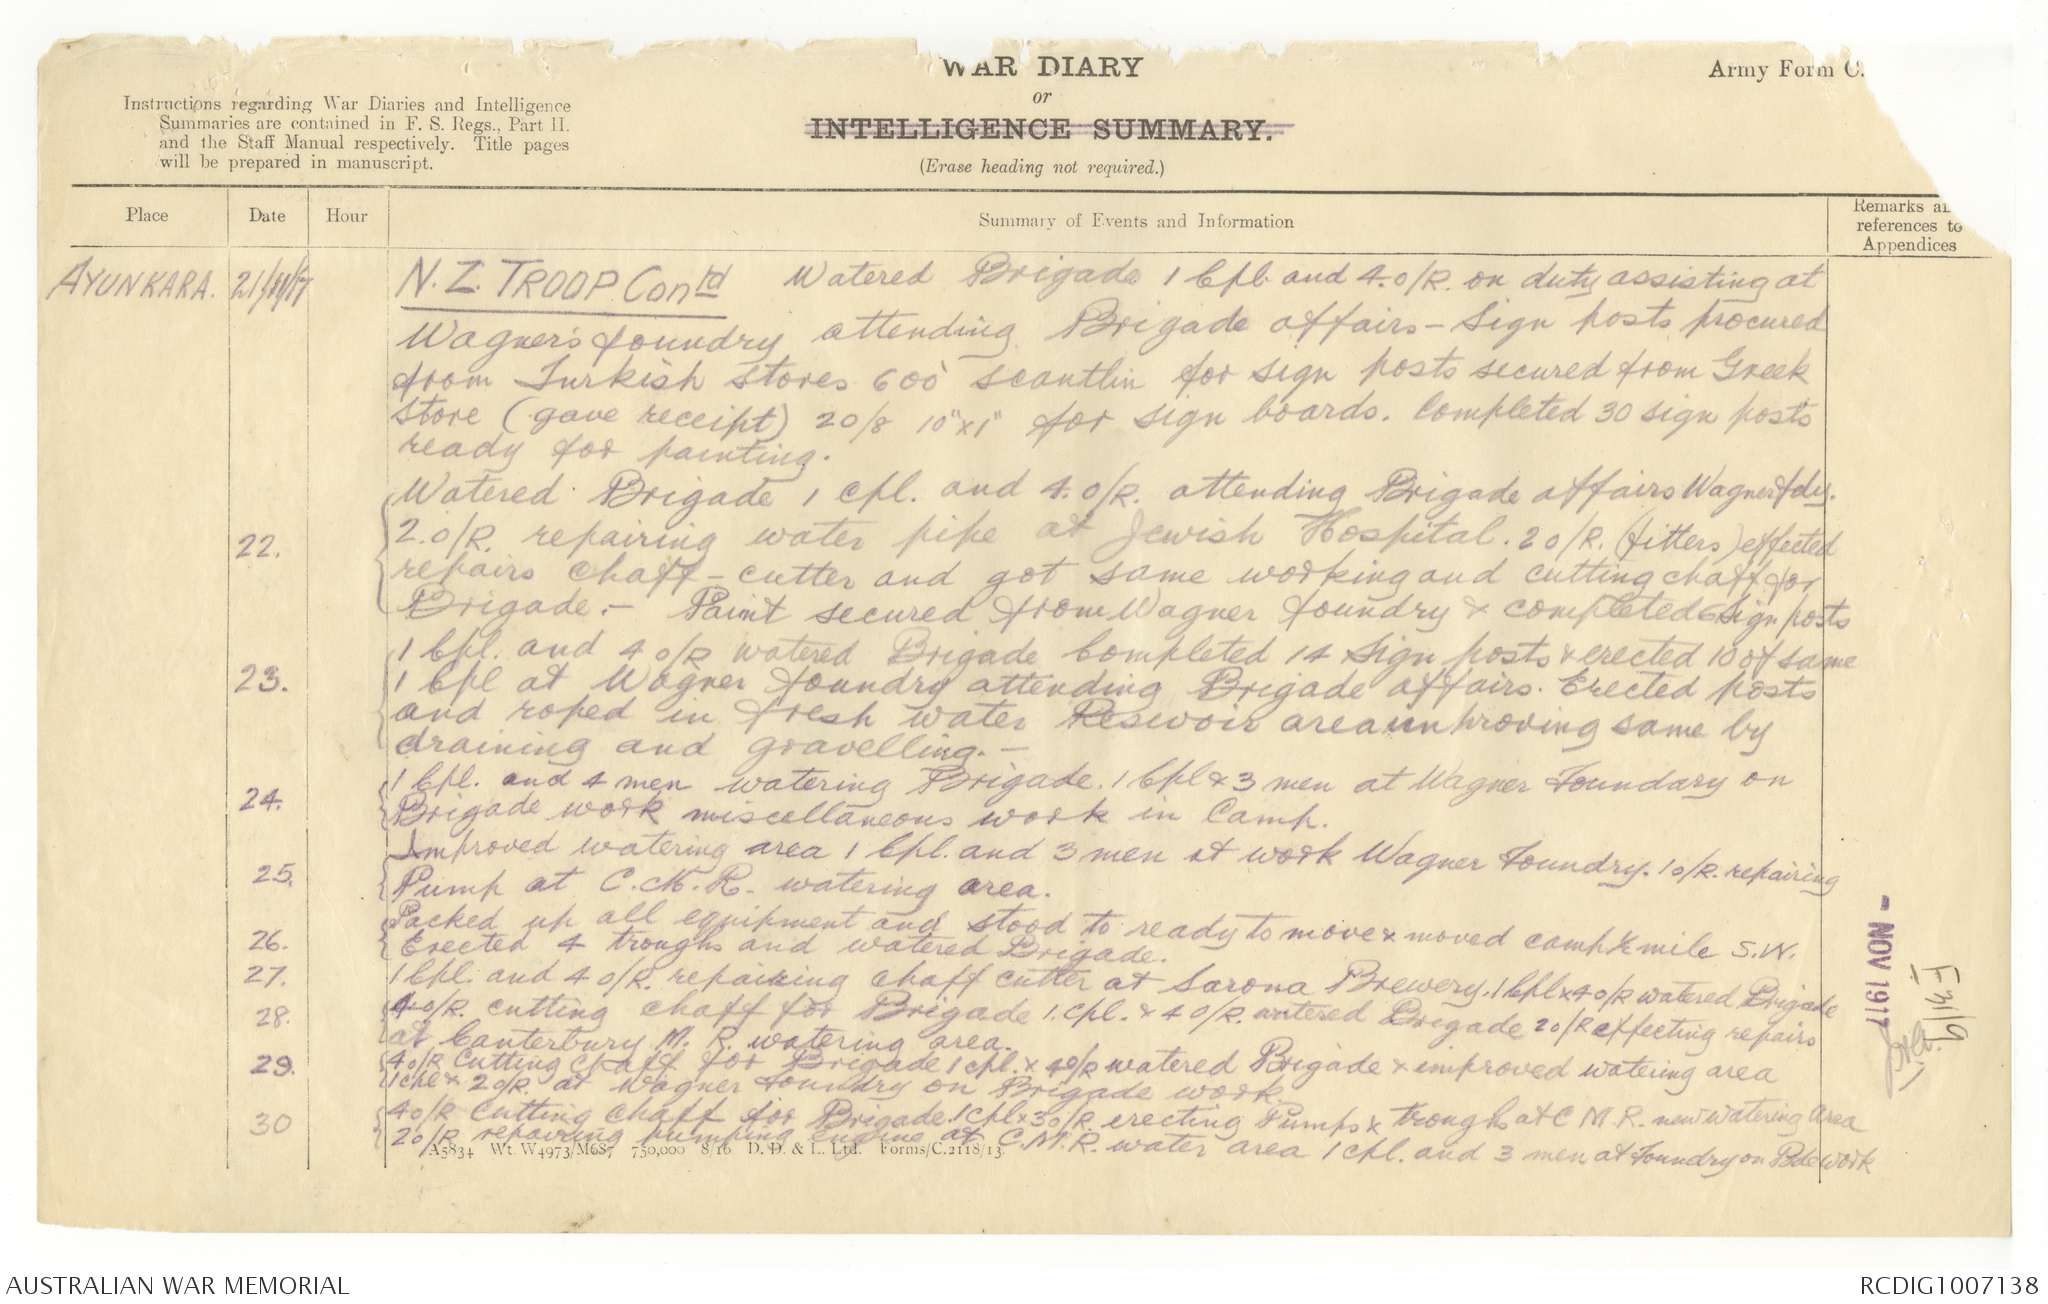 WAR DIARY
or
INTELLIGENCE SUMMARY.
(Erase heading not required.)
Army Form C.
Instructions regarding War Diaries and Intelligence
Summaries are contained in F. S. Regs., Part II.
and the Staff Manual respectively. Title pages
will be prepared in manuscript.
Place
Date
Hour
Summary of Events and Information
Remarks an
references to
Appendices
AYUNKARA. 21/11/17 N.Z. TROOP Contd Watered Brigade 1 Cpl. and 4.O/R. on duty assisting at
Wagner's foundry attending Brigade affairs - Sign posts procured
from Turkish stores 600' scantlin for sign posts secured from Greek
store (gave receipt) 20/8 10"x1" for sign boards. Completed 30 sign posts
ready for painting.
22. Watered Brigade 1 cpl. and 4.O/R. attending Brigade affairs Wagner fdy.
2.O/R. repairing water pipe at Jewish Hospital. 2O/R. (fitters) effected
repairs chaff-cutter and got same working and cutting chaff for
Brigade. - Paint secured from Wagner foundry & completed 6 sign posts
23. 1 Cpl. and 4 O/R watered Brigade Completed 14 sign posts & erected 10 of same
1 Cpl at Wagner foundry attending Brigade affairs. Erected posts
and roped in fresh water Resevoir area improving same by
draining and gravelling. -
24. 1 Cpl. and 4 men watering Brigade. 1 Cpl & 3 men at Wagner Foundary on
Brigade work miscellaneous work in Camp.
25. Improved watering area 1 Cpl. and 3 men at work Wagner Foundry. 1 O/R. repairing
Pump at C.M.R. watering area.
26. Packed up all equipment and stood to ready to move & moved camp ½ mile S.W.
Erected 4 troughs and watered Brigade.
27. 1 Cpl. and 4 O/R. repairing chaff cutter at Sarona Brewery. 1 Cpl & 4 O/R watered Brigade
28. 4 O/R. cutting chaff for Brigade 1. Cpl. & 4 O/R. watered Brigade 2O/R effecting repairs
at Canterbury M. R. watering area.
29. 4O/R cutting chaff for Brigade 1 cpl. & 4O/R watered Brigade & improved watering area
1 cpl & 2O/R. at Wagner foundry on Brigade work.
30 4O/R cutting chaff for Brigade. 1 Cpl & 3O/R. erecting Pumps & troughs at C M.R. new watering area
2O/R repairing pumping engine at C.M.R. water area 1 cpl. and 3 men at Foundry on Bde work
A5834 Wt. W4973/M687 750,000 8/16 D. D. & L. Ltd. Forms/C.2118/13.
- NOV 1917
AUSTRALIAN WAR MEMORIAL
RCDIG1007138